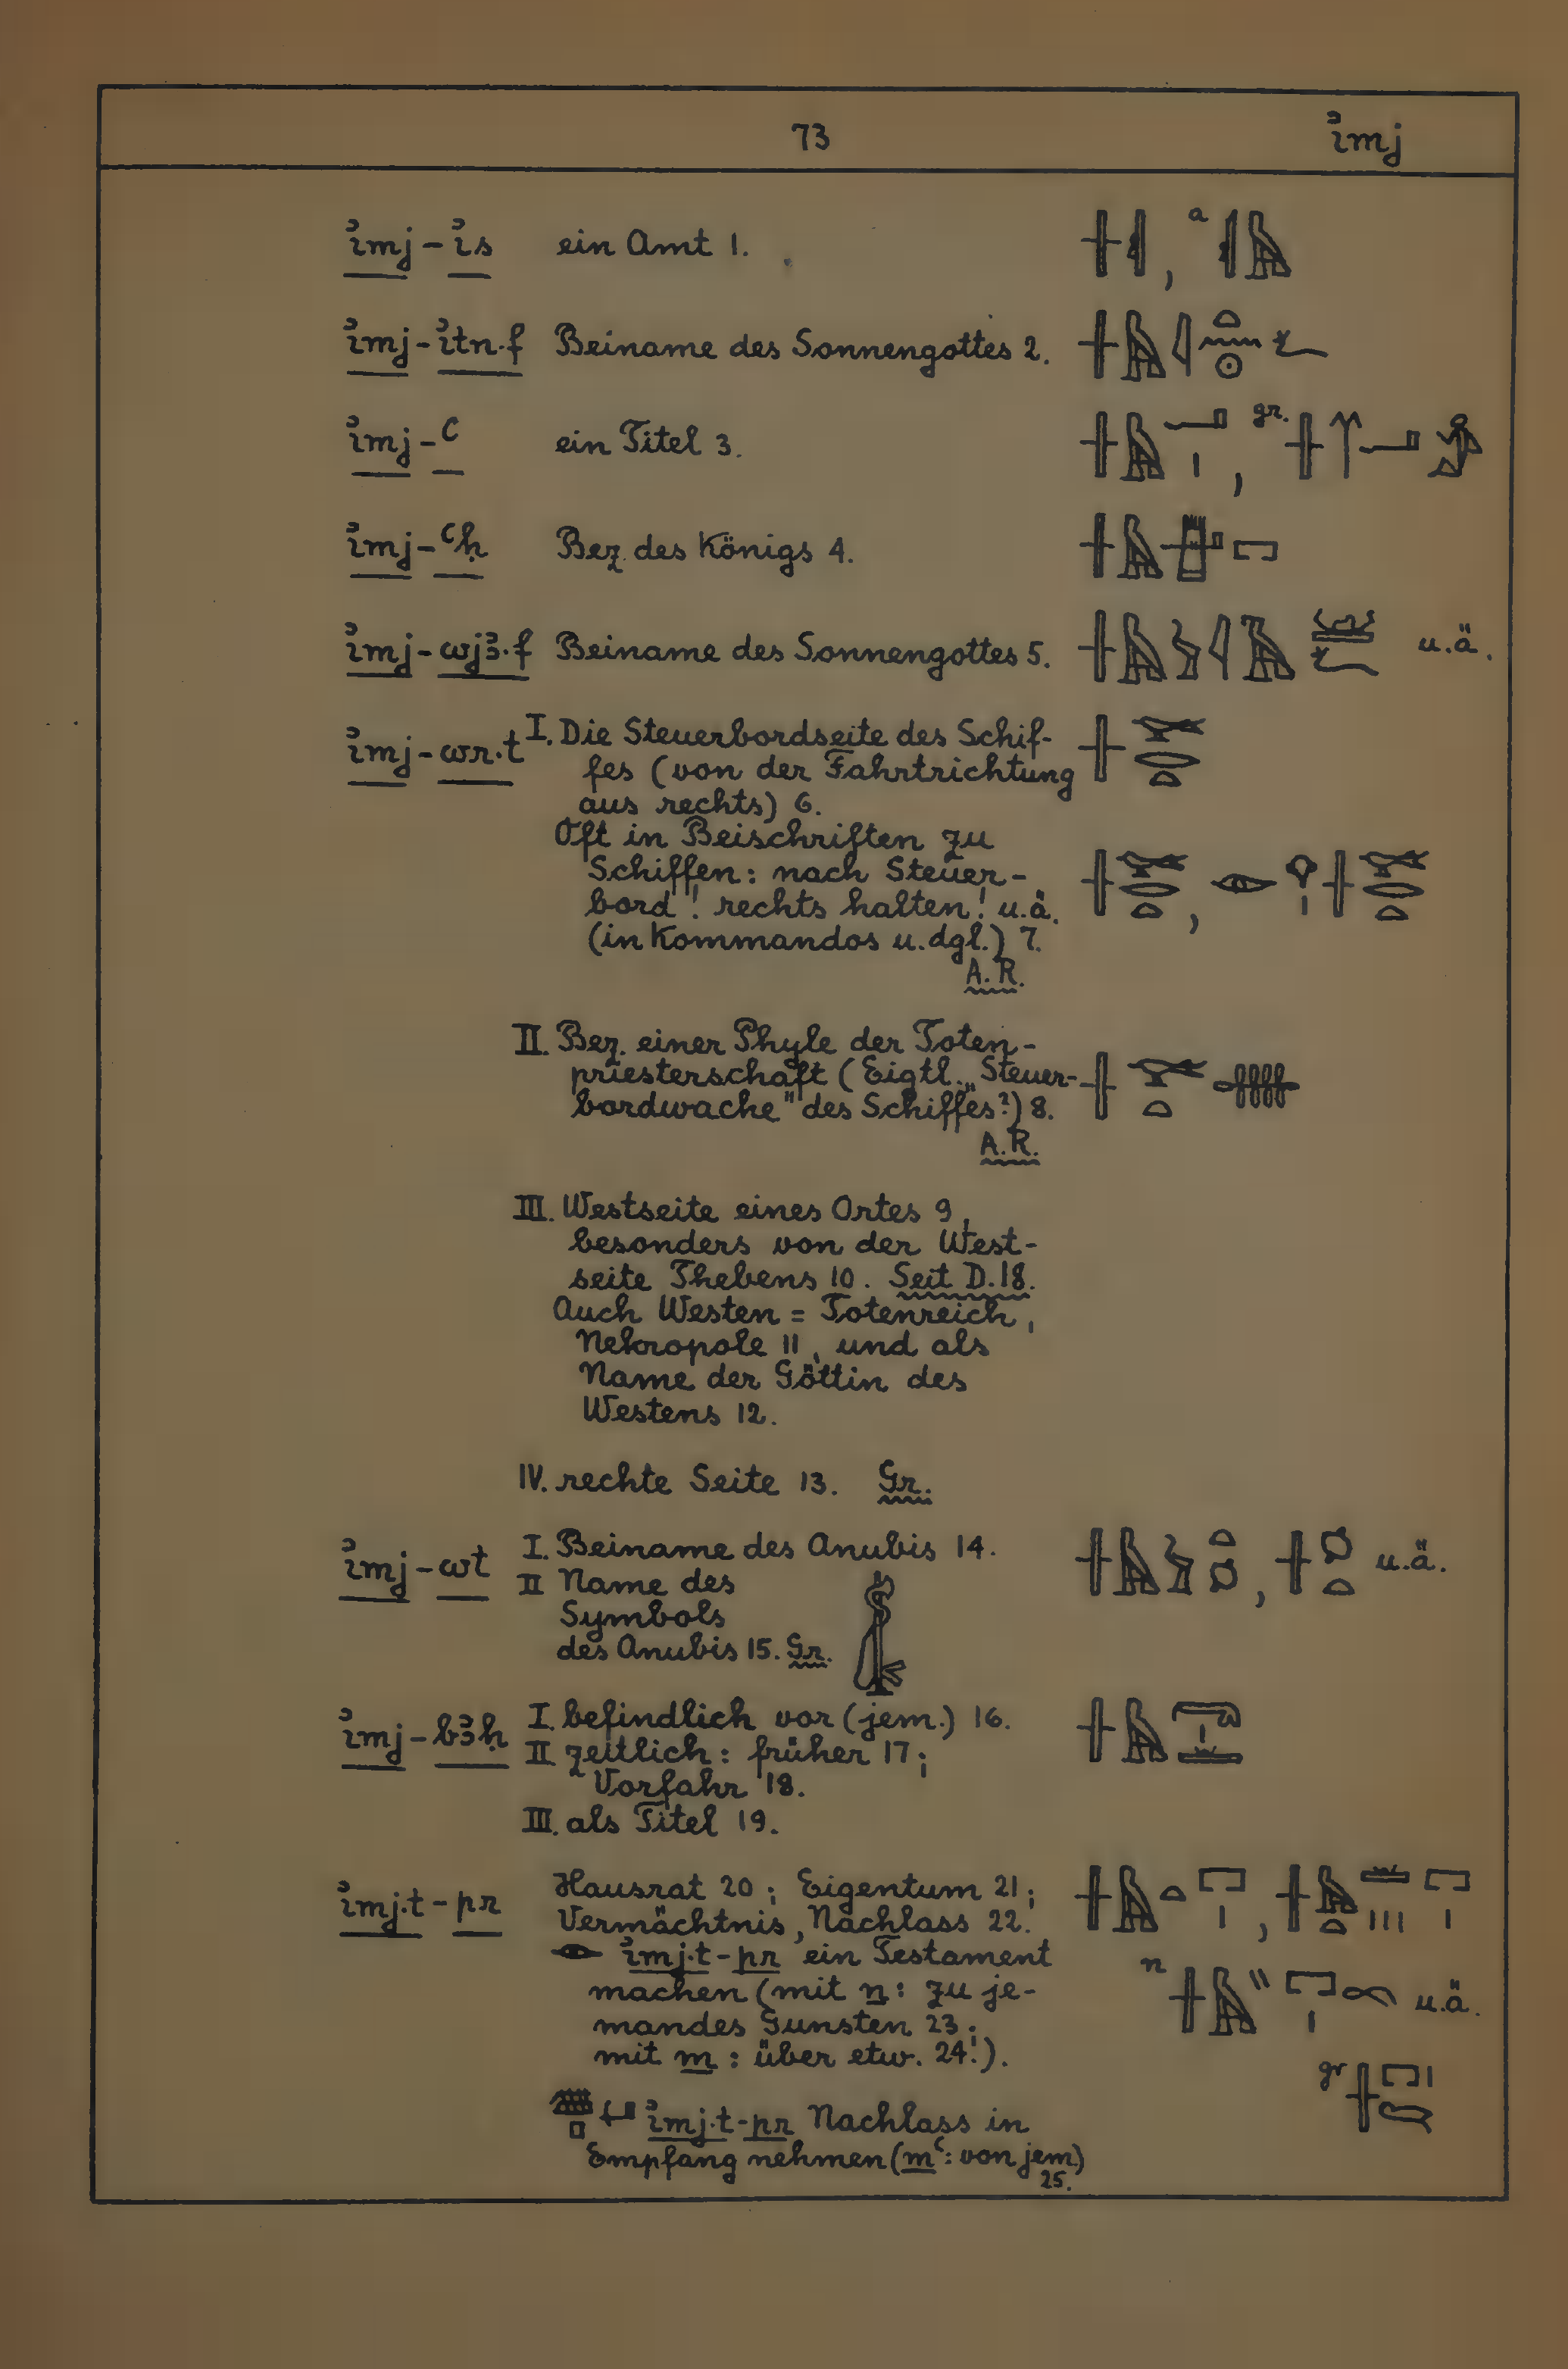 73 ꞽmj
ꞽmj-ꞽs ein Amt 1. a
ꞽmj-ꞽtn.f Beiname des Sonnengottes 2.
ꞽmj-ꜥ ein Titel 3. gr.
ꞽmj-ꜥḥ Bez. des Königs 4.
ꞽmj-wjꜣ.f Beiname des Sonnengottes 5. u.ä.
ꞽmj-wr.t I. Die Steuerbordseite des Schif-
fes (von der Fahrtrichtung
aus rechts) 6.
Oft in Beischriften zu
Schiffen: nach Steuer-
bord! rechts halten! u.ä.
(in Kommandos u.dgl.) 7.
A.R.
II. Bez. einer Phyle der Toten-
priesterschaft (Eigtl. „Steuer-
bordwache" des Schiffes?) 8.
A.R.
III. Westseite eines Ortes 9,
besonders von der West-
seite Thebens 10. Seit D.18.
Auch Westen = Totenreich,
Nekropole 11, und als
Name der Göttin des
Westens 12.
IV. rechte Seite 13. Gr.
ꞽmj-wt I. Beiname des Anubis 14. u.ä.
II Name des
Symbols
des Anubis 15. Gr.
ꞽmj-bꜣḥ I. befindlich vor (jem.) 16.
II zeitlich: früher 17;
Vorfahr 18.
III. als Titel 19.
ꞽmj.t-pr Hausrat 20; Eigentum 21;
Vermächtnis, Nachlass 22.
ꞽmj.t-pr ein Testament
machen (mit n: zu je- n u.ä.
mandes Gunsten 23;
mit m: über etw. 24!).
gr
ꞽmj.t-pr Nachlass in
Empfang nehmen (mꜥ: von jem)
25.